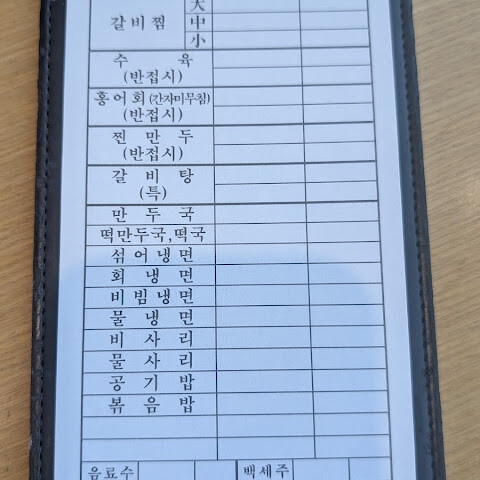 大
갈비찜 中
小
수육
(반접시)
홍어회(간자미무침)
(반접시)
찐만두
(반접시)
갈비탕
(특)
만두국
떡만두국,떡국
섞어냉면
회냉면
비빔냉면
물냉면
비사리
물사리
공기밥
볶음밥
음료수 백세주